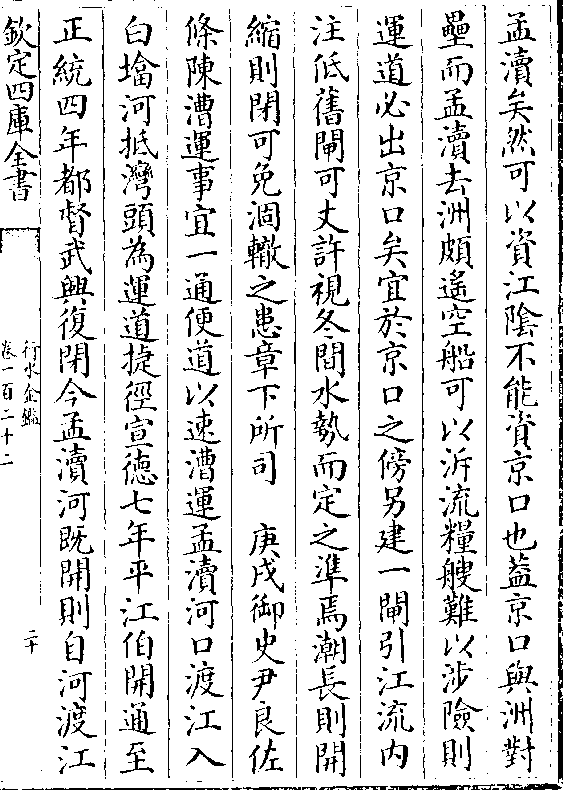 孟瀆矣然可以資江陰不能資京口也葢京口與洲對
壘而孟瀆去洲頗遙空船可以泝流糧艘難以涉險則
運道必出京口矣宜於京口之傍另建一閘引江流内
注低舊閘可丈許視冬間水勢而定之準焉潮長則開
縮則閉可免涸轍之患章下所司　庚戌御史尹良佐
條陳漕運事宜一通便道以速漕運孟瀆河口渡江入
白塔河抵灣頭為運道捷徑宣德七年平江伯開通至
正統四年都督武興復閉今孟瀆河既開則自河渡江
欽定四庫全書
行水金鑑
卷一百二十二
二十